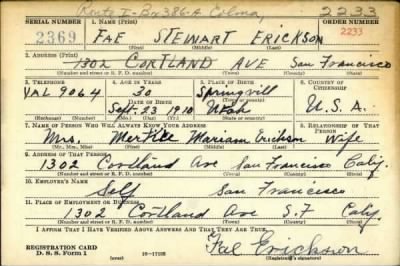 Route 1-Bx 386-A Colma, 2233
SERIAL NUMBER 1. NAME (Print) ORDER NUMBER
2369 FAE STEWART ERICKSON 2233
(First) (Middle) (Last)
2. ADDRESS (Print)
1302 CORTLAND AVE San Francisco
(Number and street or R. F. D. number) (Town) (County) (State)
3. TELEPHONE 4. AGE IN YEARS 5. PLACE OF BIRTH 6. COUNTRY OF CITIZENSHIP
VAL 9064 30 Springvill
DATE OF BIRTH (Town or county)
Sept. 5 1910 Utah U.S.A.
(Exchange) (Number) (Mo.) (Day) (Yr.) (State or country)
7. NAME OF PERSON WHO WILL ALWAYS KNOW YOUR ADDRESS 8. RELATIONSHIP OF THAT PERSON
Mrs Mertice Mariam Erickson Wife
(Mr., Mrs., Miss) (First) (Middle) (Last)
9. ADDRESS OF THAT PERSON
1302 Cortland Ave San Francisco Calif.
(Number and street or R. F. D. number) (Town) (County) (State)
10. EMPLOYER'S NAME
Self San Francisco
11. PLACE OF EMPLOYMENT OR BUSINESS
1302 Cortland Ave S.F Calif.
(Number and street or R. F. D. number) (Town) (County) (State)
I AFFIRM THAT I HAVE VERIFIED ABOVE ANSWERS AND THAT THEY ARE TRUE.
REGISTRATION CARD
D. S. S. Form 1 (over) Fae Erickson
(Registrant's signature)